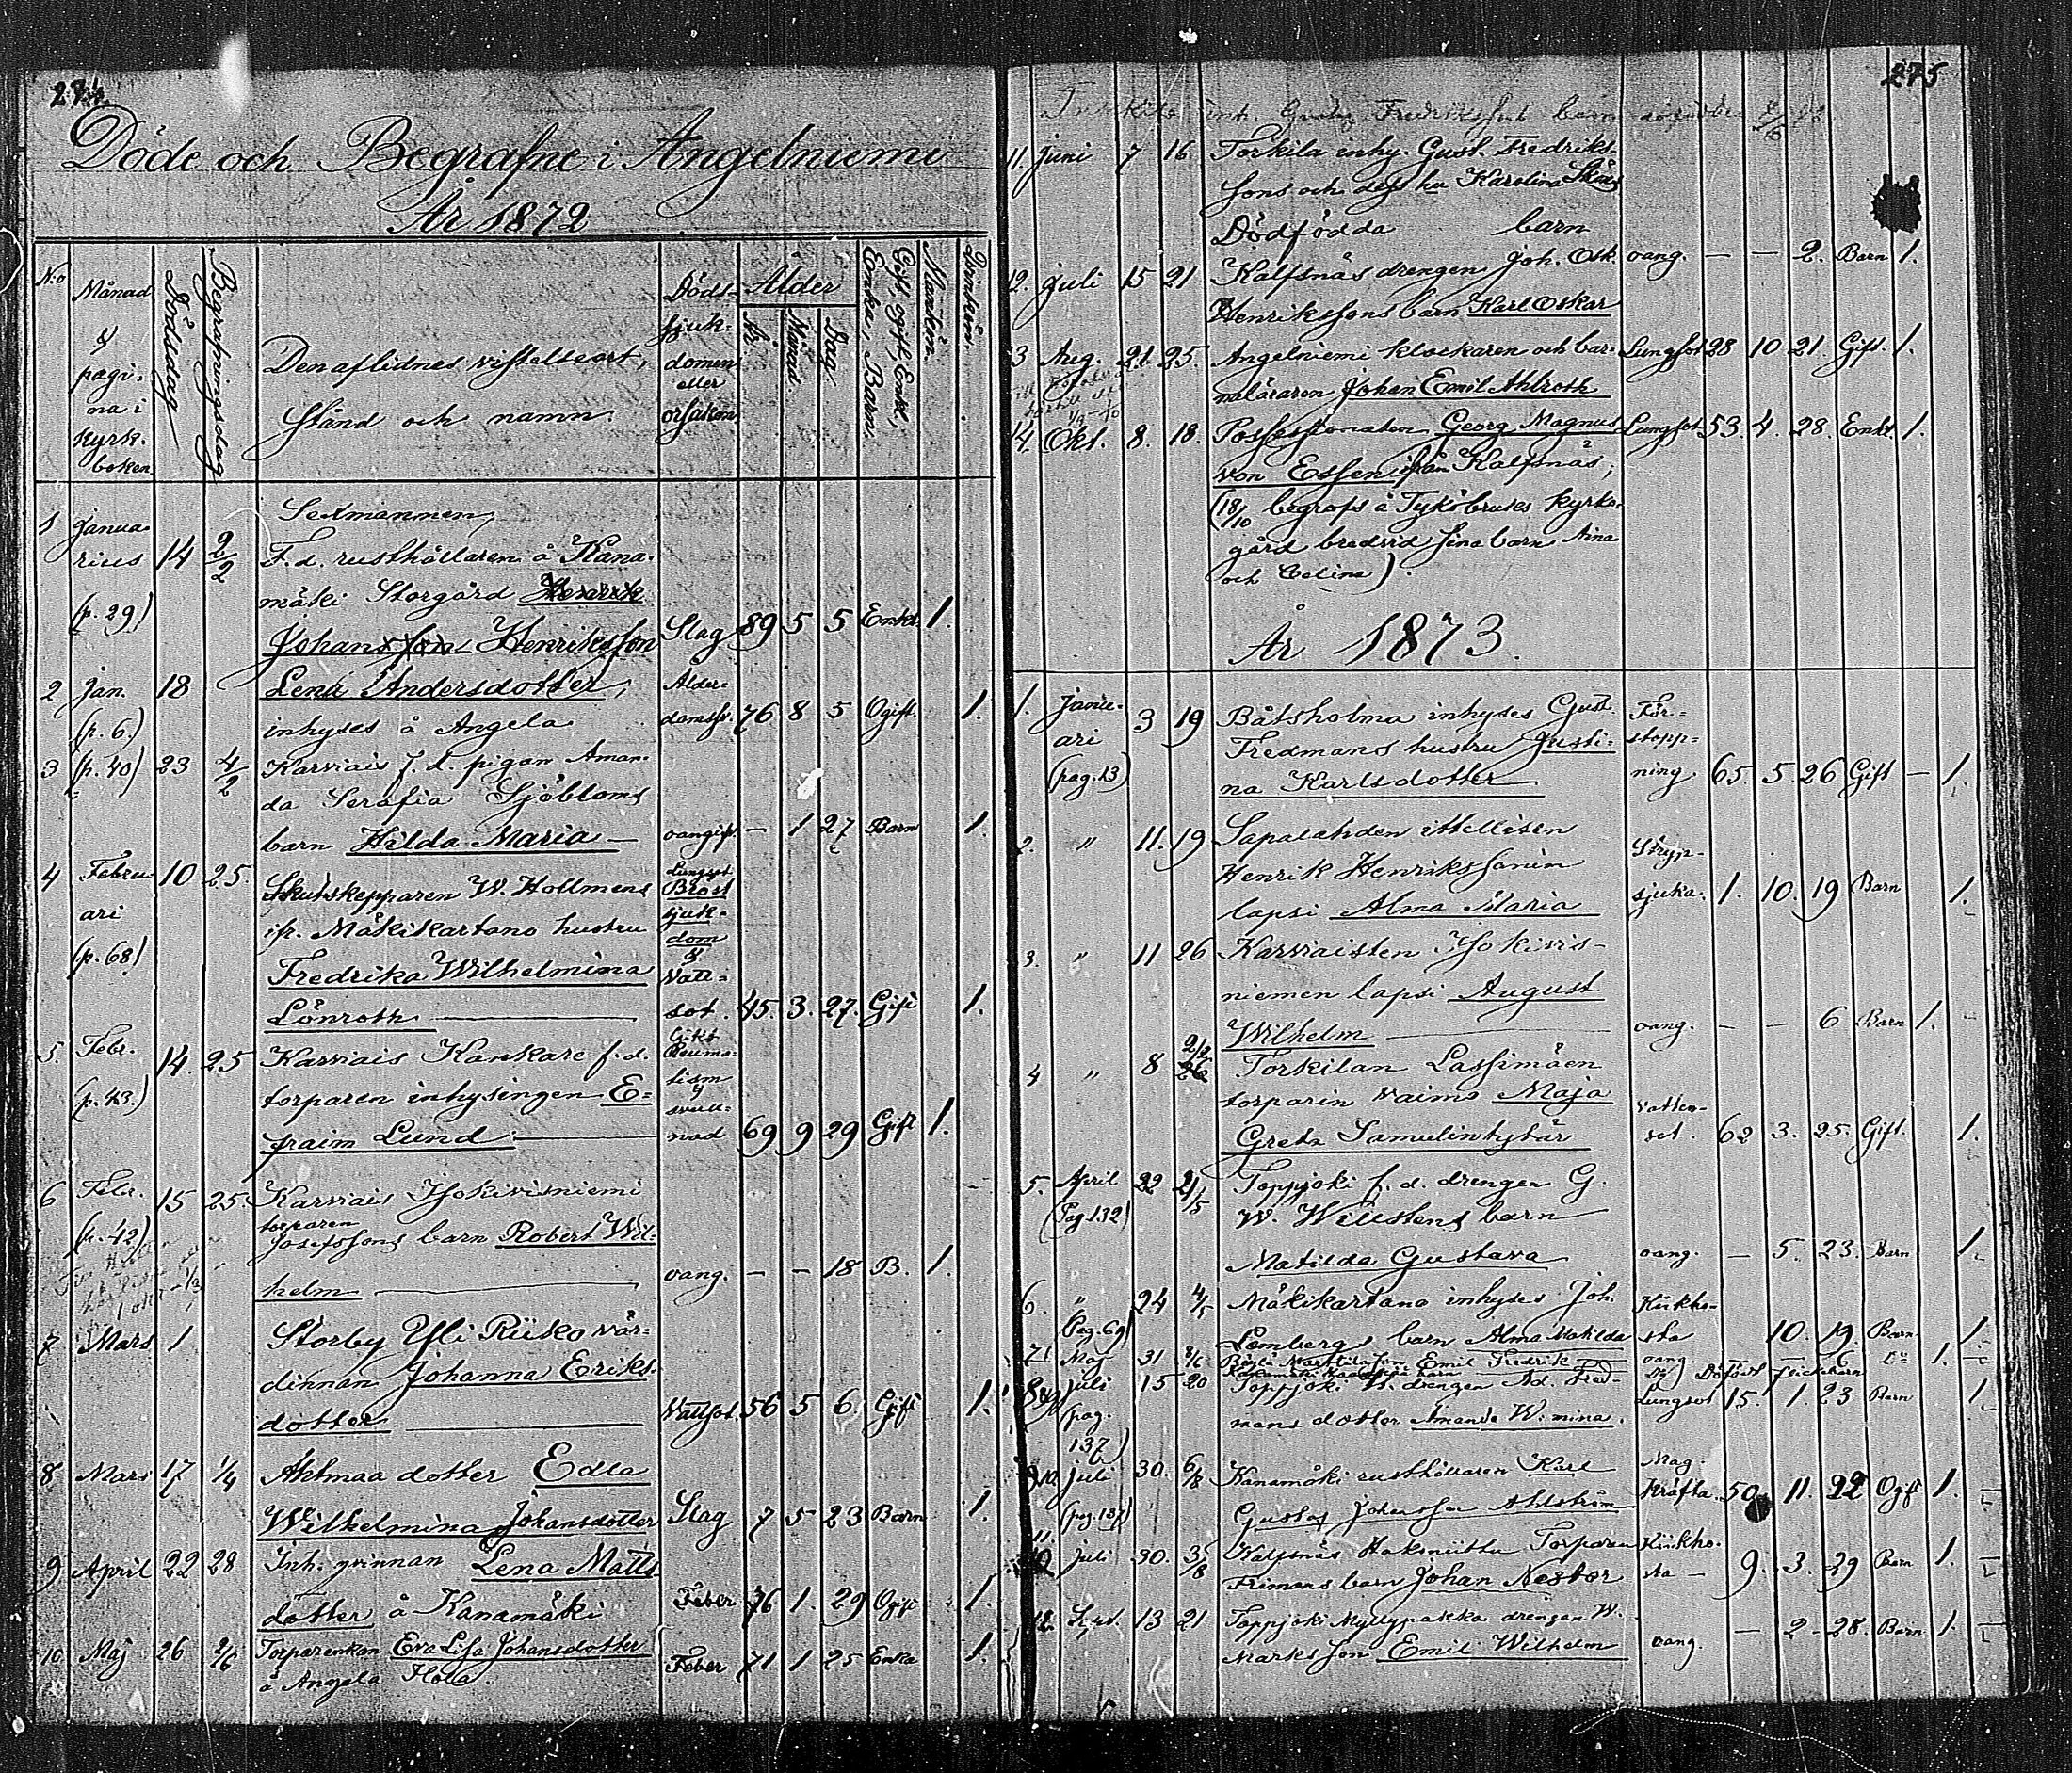 274.
Döde och Begrafne i Angelniemi
År 1872
N:o
Månad & pagina i kyrkboken
Dödsdag
Begrafningsdag
Den aflidnes vistelseort, stånd och namn.
Döds-sjukdomen eller orsaken
Ålder
År. Månad. Dag.
Gift, ogift, Enkl., Enka, Barn.
Mankön.
Qvinkön.
1 Janua- Sexmannen,
rius 14 2/2 F. d. rusthållaren å Kana-
(p. 29) mäki Storgård Henrik
Johansson Henriksson Slag 89 5 5 Enkl. 1.
2 Jan. 18 Lena Andersdotter, Ålder-
(p. 6.) inhyses å Angela domssv. 76 8 5 Ogift. 1.
3 (p. 40) 23 4/2 Karviais f. d. pigan Aman-
da Serafia Sjöbloms
barn Hilda Maria — oangift. — 1 27 Barn 1.
4 Febru- 10 25. Skutskepparen W. Hollmens Lungsot Bröst
ari ifr. Mäkikartano hustru sjuk-
(p. 68) dom &
Fredrika Wilhelmina Vatt-
Lönroth — sot. 45. 3. 27. Gift 1.
5. Febr. 14. 25 Karviais Kankare f. d. Gikt Reuma-
(p. 43.) torparen inhysingen E- tism & svull-
fraim Lund — nad 69 9 29 Gift 1.
6 Febr. 15 25. Karviais Isokivisniemi
(p. 42) torparen
Josefssons barn Robert Wil-
helm — oang. — — 18 B. 1.
7 Mars 1 Storby Yli Riiko vär-
dinnan Johanna Eriks-
dotter — Vattsot. 56 5 6 Gift 1.
8 Mars 17 1/4 Ahlmaa dotter Edla
Wilhelmina Johansdotter Slag 7 5 23 Barn 1.
9 April 22 28 Inh. qvinnan Lena Matts
dotter å Kanamäki Feber 76 1. 29 Ogift 1.
10 Maj 26 2/6 Torparenkan Eva Lisa Johansdotter
å Angela Flola. Feber 71 1 25 Enka 1.
275
11. Juni 7 16. Torkila inhy. Gust. Fredriks-
sons och dess hu Karolina
Dödfödda barn
12. Juli 15 21 Kalfsnäs drengen Joh. Osk. oang. — — 2. Barn 1.
Henrikssons barn Karl Oskar
3 Aug. 21. 25. Angelniemi klockaren och bar- Lungsot 28 10 21. Gift. 1.
naläraren Johan Emil Ahlroth
14. Okt. 8. 18. Possessionaten Georg Magnus Lungsot 53. 4. 28. Enkl. 1.
von Essen ifrån Kalfsnäs,
(18/10 begrofs å Tykö bruks kyrko-
gård bredvid sina barn Aina
och Celine).
År 1873.
1. Janu- 3 19 Båtsholma inhyses Gust. För-
ari Fredmans hustru Justi- stopp-
(pag. 13) na Karlsdotter ning 65. 5. 26 Gift — 1.
2. " 11. 19 Sapalahden itsellisen
Henrik Henrikssonin Stryp-
lapsi Alma Maria sjuka. 1. 10. 19 Barn 1.
3. " 11 26 Karviaisten Isokivis-
niemen lapsi August
Wilhelm — oang. — — 6 Barn 1.
4 " 8 2/2 26 Torkilan Lassimäen
torparin vaimo Maja Vatten-
Greta Samulintytär sot. 62 3. 25. Gift. 1.
5. April 22 21/5 Toppjoki f. d. drengen G.
(Pag. 132) W. Willstens barn
Matilda Gustava oang. — 5. 23. Barn 1.
6. " 24 4/5 Mäkikartano inhyses Joh. Kikho-
(Pag. 69) Lembergs barn Alma Matilda sta 10. 19 Barn 1.
7. Maj 31 8/6 Emil Fredrik oang. — 6 D:o 1.
Juli 15 20 Toppjoki drengen Ad. Fred- Lungsot 15. 1. 23 Barn 1.
(pag. 137) mans dotter Amanda W:mina.
Juli 30. 6/8 Kanamäki rusthållaren Karl Mag.
(pag. 137) Gustaf Johansson Ahlström kräfta 50 11. 22 Ogift 1.
11 Juli 30. 3/8 Kalfsnäs Haksniittu Torparen Kikho-
Frimans barn Johan Nestor sta — 9. 3. 29 Barn 1.
12. 13 21 Toppjoki Myllypakka drengen W.
Marksson Emil Wilhelm oang. — 2 28. Barn 1.